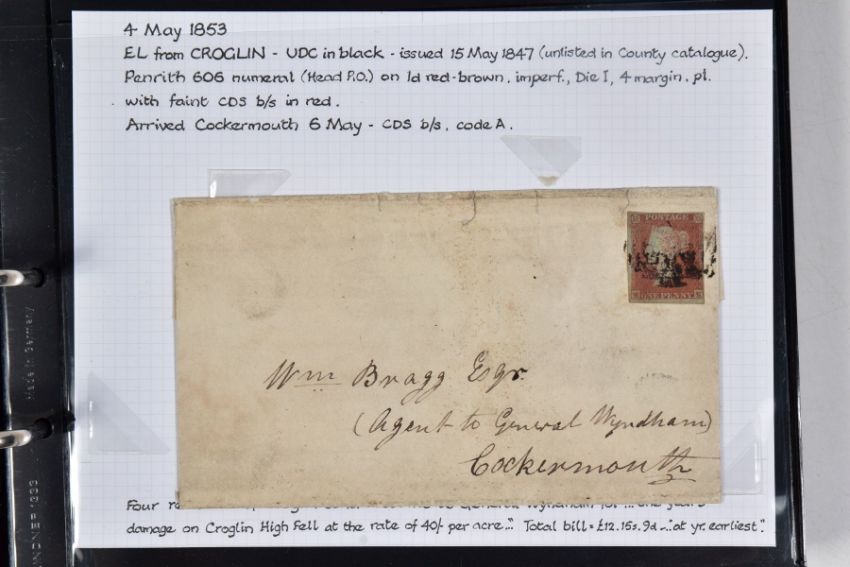 4 May 1853
EL from CROGLIN - UDC in black - issued 15 May 1847 (unlisted in County catalogue).
Penrith 606 numeral (Head P.O.) on 1d red-brown, imperf., Die I, 4 margin. pl.
with faint CDS b/s in red.
Arrived Cockermouth 6 May - CDS b/s. code A.
POSTAGE
ONE PENNY
Wm Bragg Esqr.
(Agent to General Wyndham)
Cockermouth
Four
damage on Croglin High Fell at the rate of 40/- per acre..." Total bill = £12. 15s. 9d -"at yr. earliest".
Made in Germany